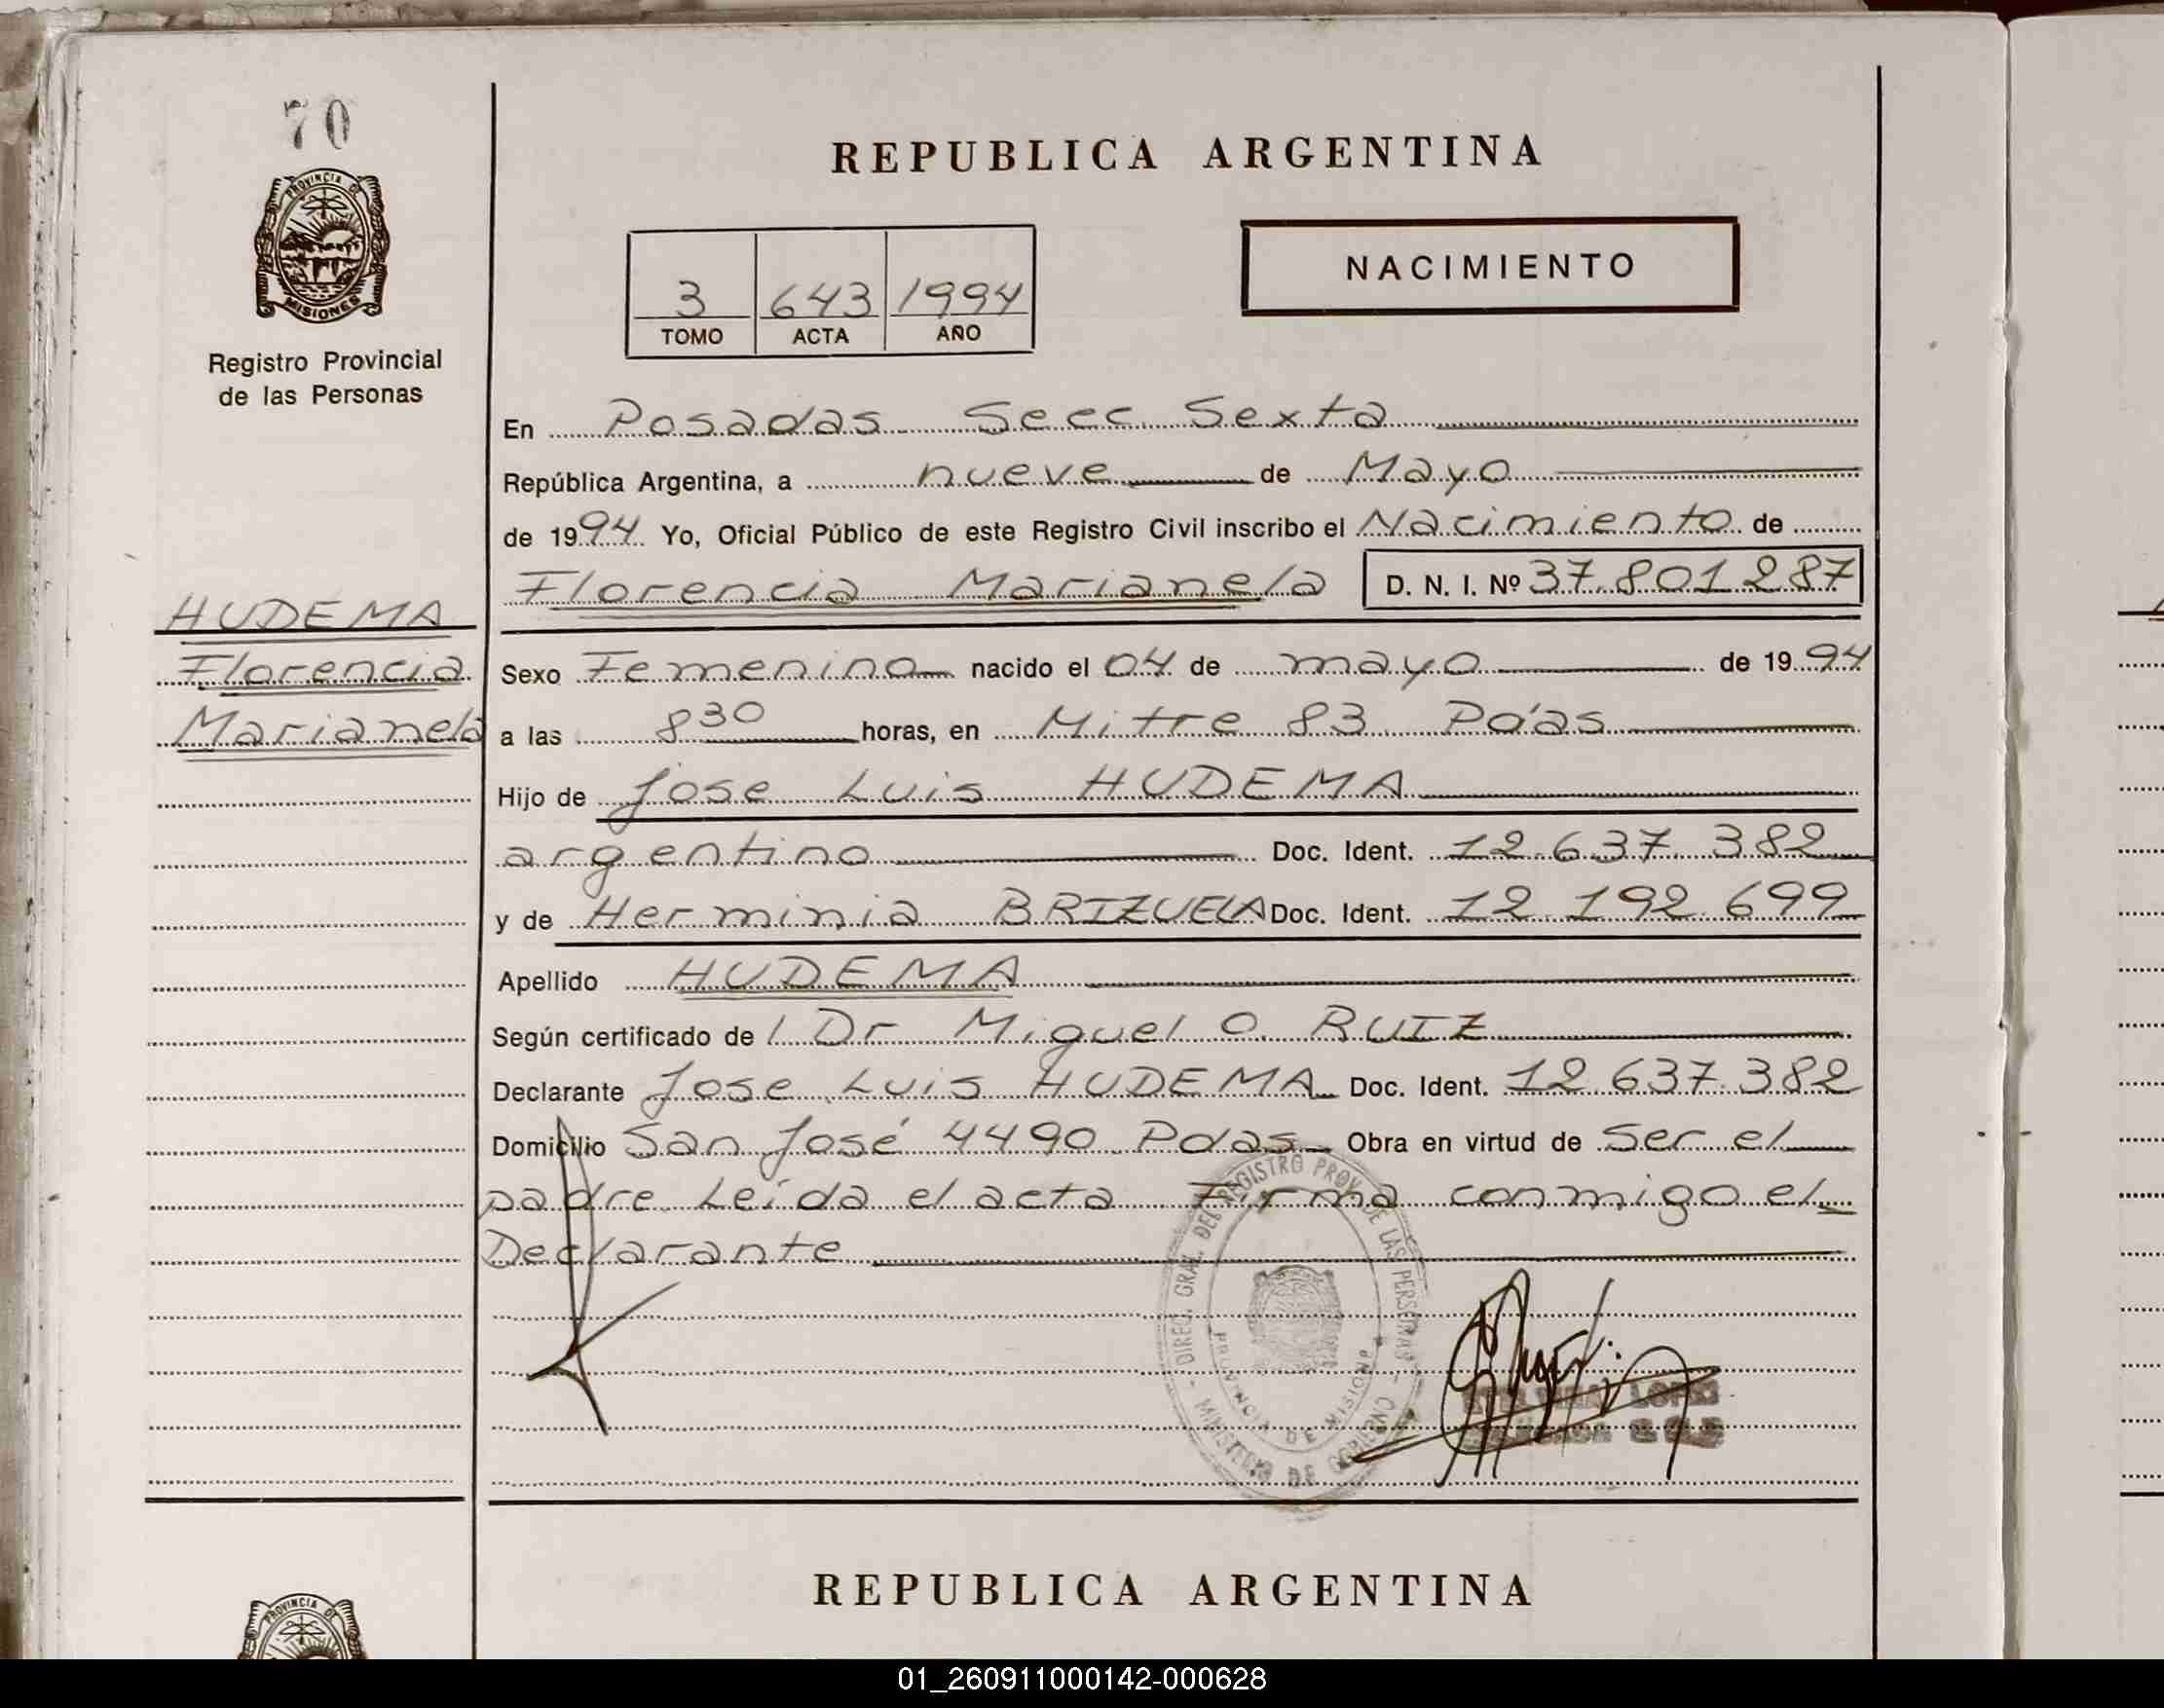 70
PROVINCIA DE
MISIONES
Registro Provincial
de las Personas
HUDEMA
Florencia
Marianela
REPUBLICA ARGENTINA
3 643 1994
TOMO ACTA AÑO
NACIMIENTO
En Posadas Secc. Sexta
República Argentina, a nueve de Mayo
de 1994 Yo, Oficial Público de este Registro Civil inscribo el Nacimiento de
Florencia Marianela D. N. I. Nº 37.801.287
Sexo Femenino nacido el 04 de mayo de 1994
a las 8 30 horas, en Mitre 83 Pdas
Hijo de Jose Luis HUDEMA
argentino Doc. Ident. 12.637.382
y de Herminia BRIZUELA Doc. Ident. 12.192.699
Apellido HUDEMA
Según certificado de l Dr Miguel O. RUIZ
Declarante Jose Luis HUDEMA Doc. Ident. 12.637.382
Domicilio San José 4490 Pdas Obra en virtud de ser el
padre. Leída el acta Firma conmigo el
Declarante
DIREC. GRAL. DEL REGISTRO PROV. DE LAS PERSONAS
MINISTERIO DE GOBIERNO
PROVINCIA DE MISIONES
LOPEZ
REPUBLICA ARGENTINA
PROVINCIA DE
01_260911000142-000628